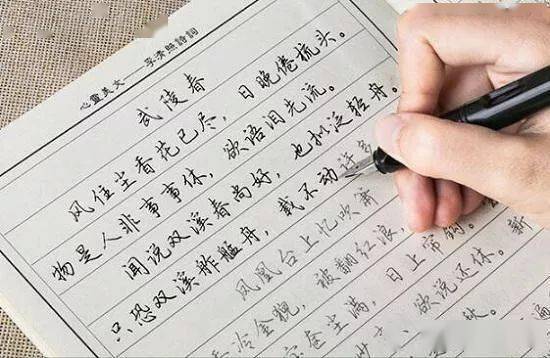 心靈美文——李清照詩詞
武陵春
风住尘香花已尽，日晚倦梳头。
物是人非事事休，欲语泪先流。
闻说双溪春尚好，也拟泛轻舟。
只恐双溪舴艋舟，载不动许多
凤凰台上忆吹
冷金猊，被翻红浪，
尘满，日上帘钩。
欲说还休。新